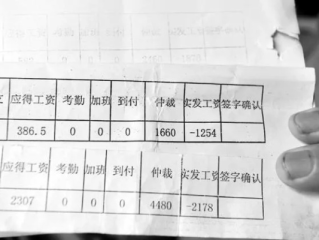 应得工资 考勤 加班 到付 仲裁 实发工资 签字确认
386.5 0 0 0 1660 -1254
应得工资 考勤 加班 到付 仲裁 实发工资 签字确认
2307 0 0 0 4480 -2178